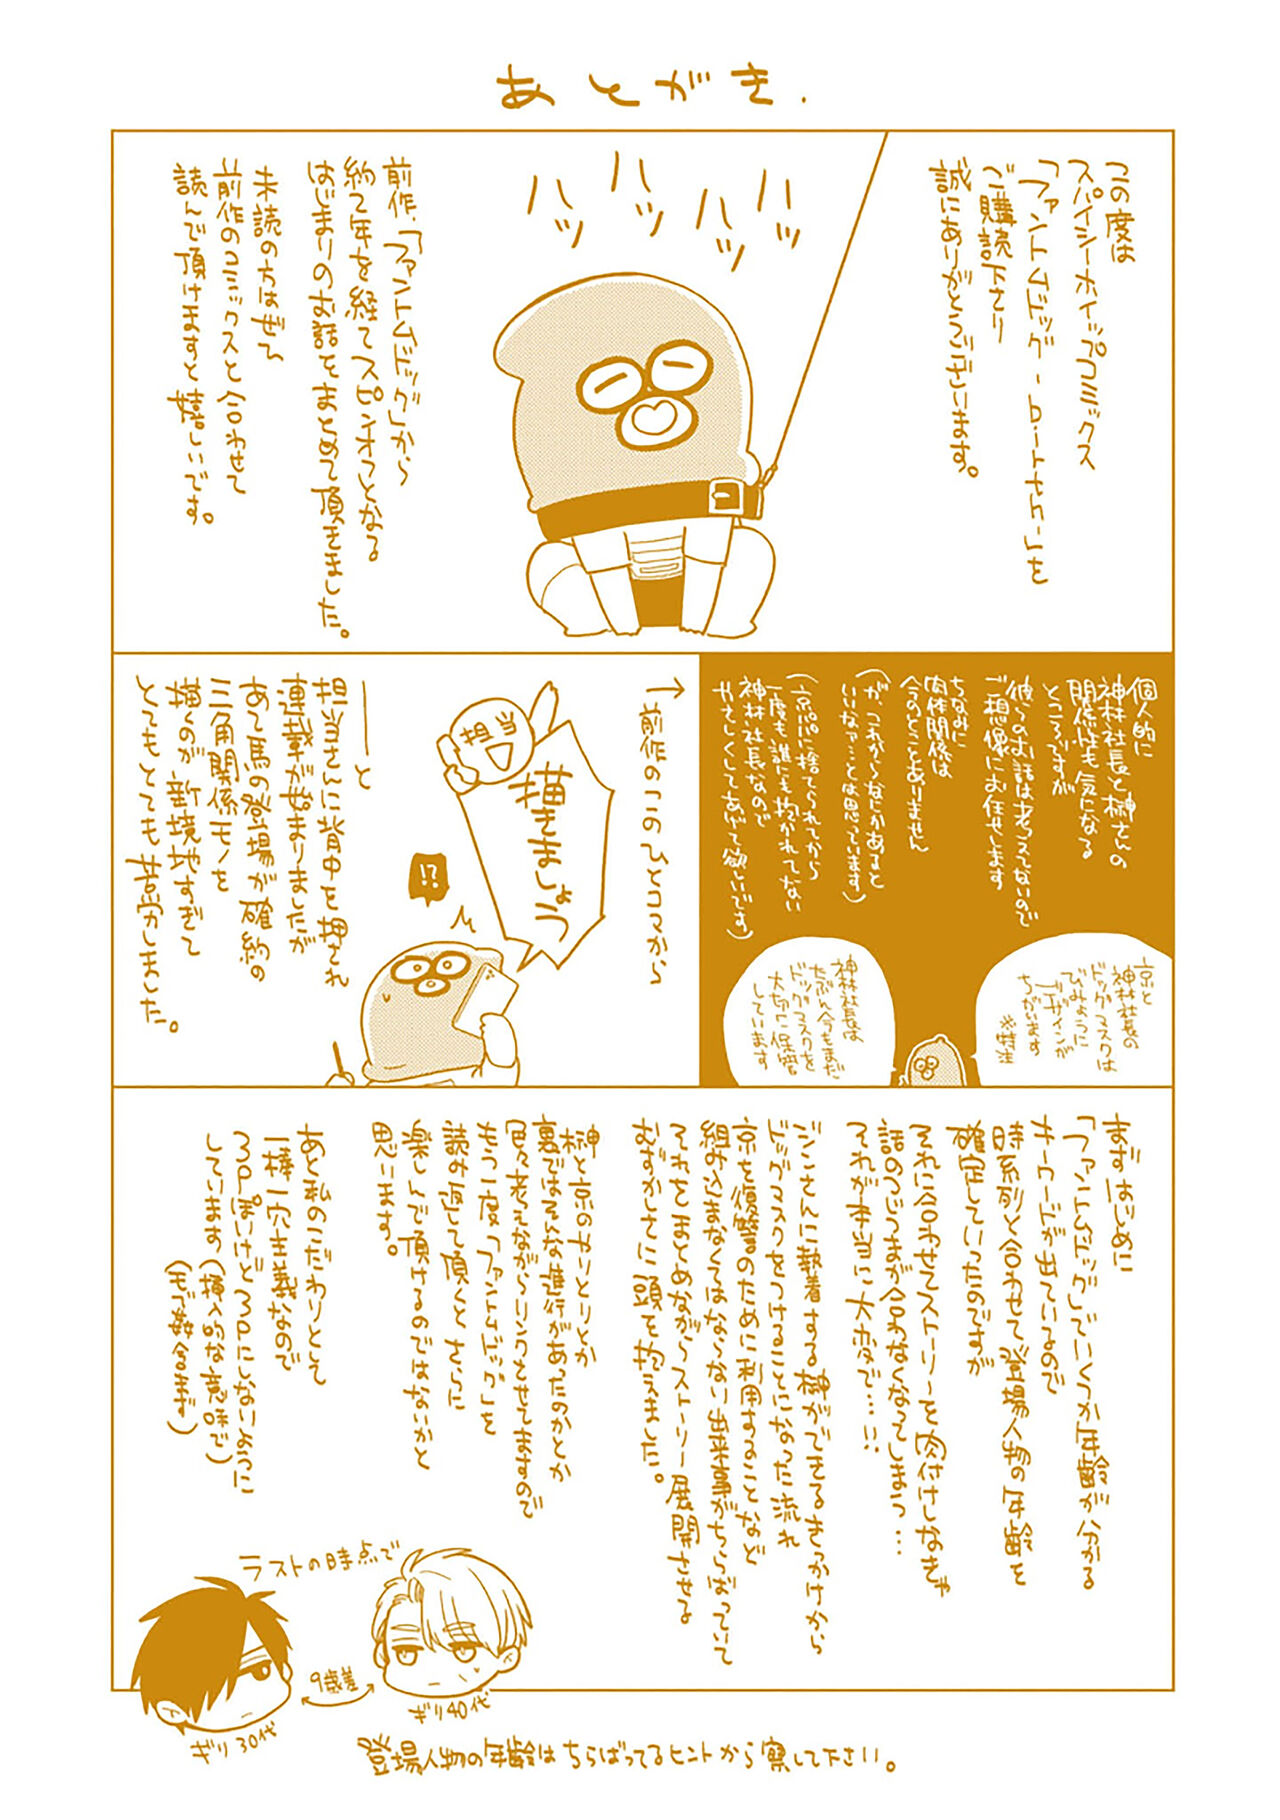 あとがき.
この度は
スパイシーホイップコミックス
「ファントムドッグ -birth-」を
ご購読下さり
誠にありがとうございます。
ハッ
ハッ
ハッ
ハッ
前作、「ファントムドッグ」から
約2年を経てスピンオフとなる
はじまりのお話をまとめて頂きました。
未読の方はぜひ
前作のコミックスと合わせて
読んで頂けますと嬉しいです。
個人的に
神林社長と榊さんの
関係性も気になる
ところですが
彼らのお話は考えてないので
ご想像にお任せします
ちなみに
肉体関係は
今のとこありません
(が、これからなにかあると
いいなァ…とは思っています)
(京パパに捨てられてから
一度も誰にも抱かれてない
神林社長なので
やさしくしてあげて欲しいです)
京と
神林社長の
ドッグマスクは
びみょうに
デザインが
ちがいます
※特注
神林社長は
たぶん今もまだ
ドッグマスクを
大切に保管
しています
→前作のこのひとコマから
担当
描きましょう
!?
――と
担当さんに背中を押され
連載が始まりましたが
あて馬の登場が確約の
三角関係モノを
描くのが新境地すぎて
とてもとても苦労しました。
まずはじめに
「ファントムドッグ」でいくつか年齢が分かる
キーワードが出ているので
時系列と合わせて登場人物の年齢を
確定していったのですが
それに合わせてストーリーを肉付けしなきゃ
話のつじつまが合わなくなってしまう…
それが本当に大変で……
ジンさんに執着する榊ができるきっかけから
ドッグマスクをつけることになった流れ
京を復讐のために利用することなど
組み込まなくてはならない出来事がちらばっていて
それをまとめながらストーリー展開させる
むずかしさに頭を抱えました。
榊と京のやりとりとか
裏ではそんな進行があったのかとか
色々考えながらリンクさせてますので
もう一度「ファントムドッグ」を
読み返して頂くとさらに
楽しんで頂けるのではないかと
思います。
あと私のこだわりとして
一棒一穴主義なので
3Pぽいけど3Pにしないように
しています(挿入的な意味で)
(モブ姦含まず)
ラストの時点で
9歳差
ギリ40代
ギリ30代
登場人物の年齢はちらばってるヒントから察して下さい。